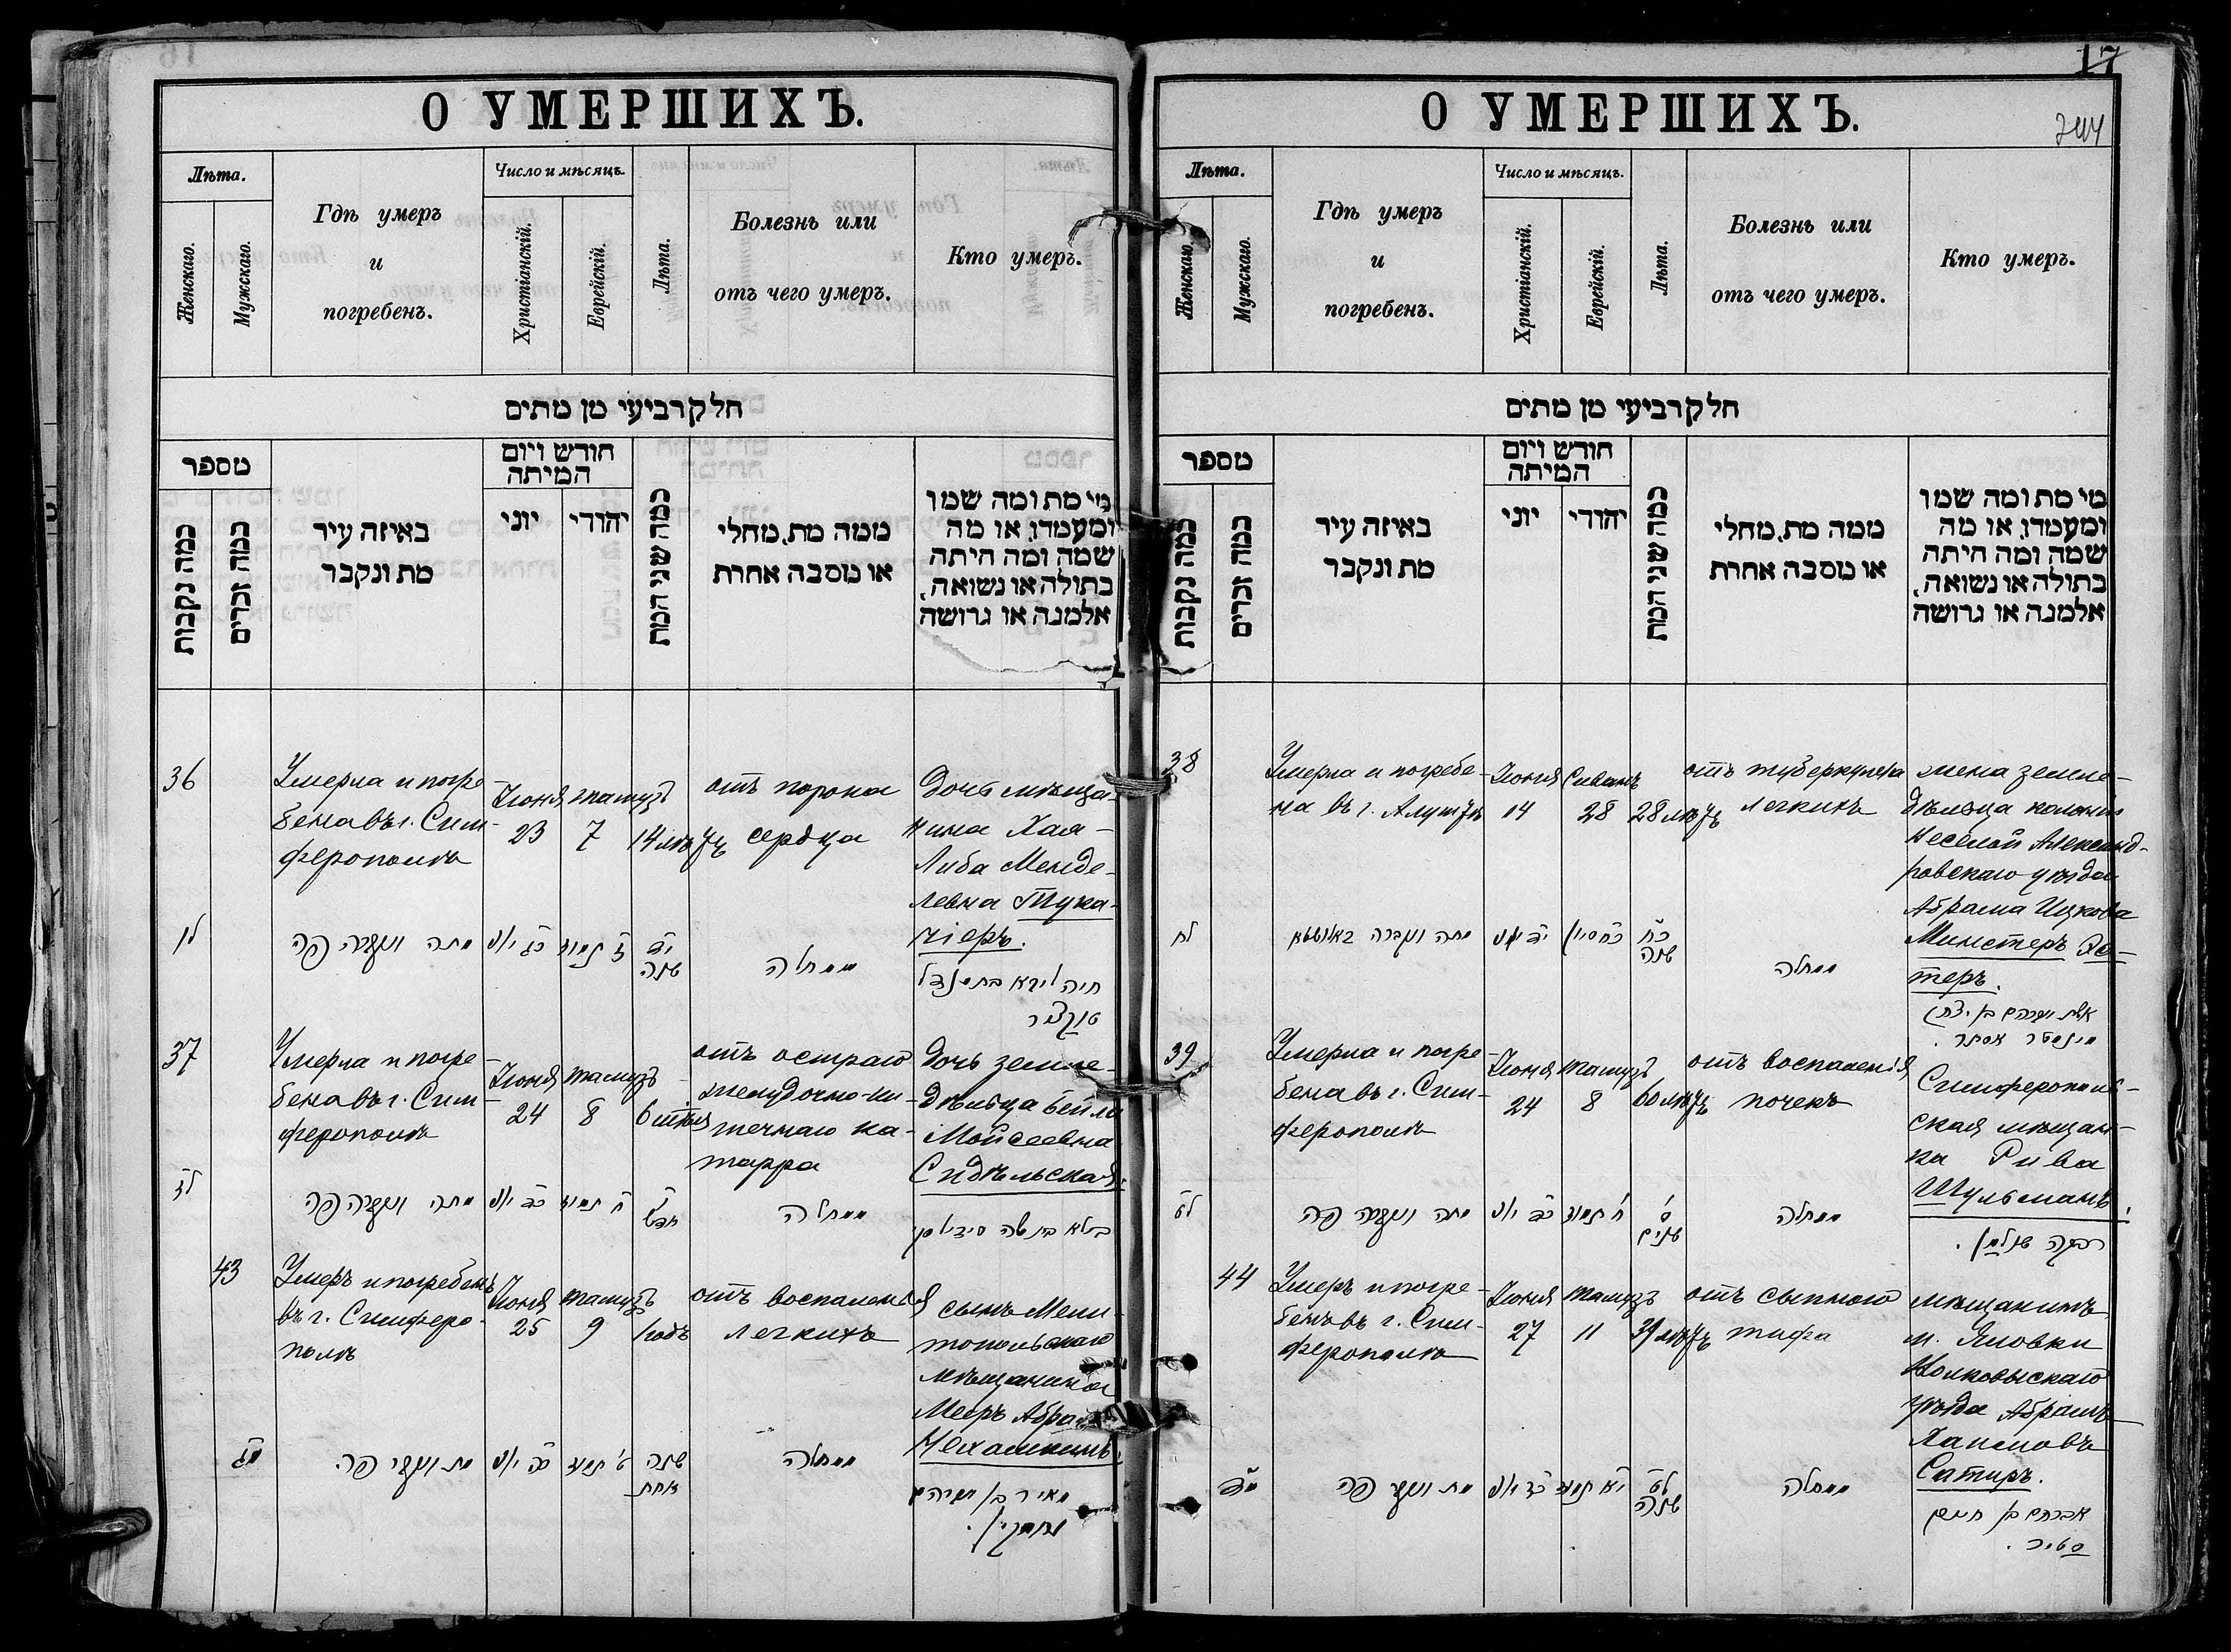 17
244
О УМЕРШИХЪ.
Лѣта.
Женскаго.
Мужскаго.
Гдѣ умеръ
и
погребенъ.
Число и мѣсяцъ.
Христіанскій.
Еврейскій.
Лѣта.
Болезнь или
отъ чего умеръ.
Кто умеръ.
חלק רביעי מן מתים
מספר
כמה נקבות
כמה זכרים
באיזה עיר
מת ונקבר
חודש ויום
המיתה
יוני
יהודי
כמה שני המת
ממה מת, מחלי
או מסבה אחרת
מי מת ומה שמו
ומעמדו, או מה
שמה ומה היתה
בתולה או נשואה,
אלמנה או גרושה
36
Умерла и погре-
бена въ г. Сим-
ферополѣ
Іюня
23
Тамузъ
7
14 лѣтъ
отъ порока
сердца
Дочь мѣща-
нина Хая-
Либа Менде-
левна Тука-
чіеръ.
מתה ונקברה פה
כג יוני
ז תמוז
יד
שנה
ממחלה
37
Умерла и погре-
бена въ г. Сим-
ферополѣ
Іюня
24
Тамузъ
8
отъ остраго
желудочно-ки-
шечнаго ка-
тарра
Дочь земле-
дѣльца Бейла
Мойсеевна
Сидѣльская.
לז
מתה ונקברה פה
כד יוני
ח תמוז
ממחלה
43
Умеръ и погребенъ
въ г. Симферо-
полѣ
Іюня
25
Тамузъ
9
1 годъ
отъ воспаленія
легкихъ
сынъ Мели-
топольскаго
мѣщанина
Мееръ Абрам
Нехамкинъ.
מג
מת ונקבר פה.
כה יוני
ט תמוז
שנה
אחת
ממחלה
מאיר בן אברהם
נחמקין.
О УМЕРШИХЪ.
Лѣта.
Женскаго.
Мужскаго.
Гдѣ умеръ
и
погребенъ.
Число и мѣсяцъ.
Христіанскій.
Еврейскій.
Лѣта.
Болезнь или
отъ чего умеръ.
Кто умеръ.
חלק רביעי מן מתים
מספר
כמה נקבות
כמה זכרים
באיזה עיר
מת ונקבר
חודש ויום
המיתה
יוני
יהודי
כמה שני המת
ממה מת, מחלי
או מסבה אחרת
מי מת ומה שמו
ומעמדו, או מה
שמה ומה היתה
בתולה או נשואה,
אלמנה או גרושה
38
Умерла и погребе-
на въ г. Алуштѣ
Іюня
14
Сиванъ
28
28 лѣтъ
отъ туберкулеза
легкихъ
жена земле-
дѣльца колоніи
Веселой Александ-
ровскаго уѣзда
Абрама Ицкова
Минстеръ Эс-
теръ.
לח
מתה ונקברה באלושטא
יד יוני
כח סיון
כח
שנה
ממחלה
אשת אברהם בן יצחק
מינסטר אסתר.
39
Умерла и погре-
бена въ г. Сим-
ферополѣ
Іюня
24
Тамузъ
8
60 лѣтъ
отъ воспаленія
почекъ
Симферополь-
ская мѣщан-
ка Рива
Шульманъ.
לט
מתה ונקברה פה
כד יוני
ח תמוז
ס
שנים
ממחלה
רבקה שולמן.
44
Умеръ и погре-
бенъ въ г. Сим-
ферополѣ
Іюня
27
Тамузъ
11
39 лѣтъ
отъ сыпного
тифа
мѣщанинъ
м. Яловки
Волковыскаго
уѣзда Абрамъ
Хаимовъ
Сатиръ.
מד
מת ונקבר פה
כז יוני
יא תמוז
לט
שנה
ממחלה
אברהם בן חיים
סטיר.